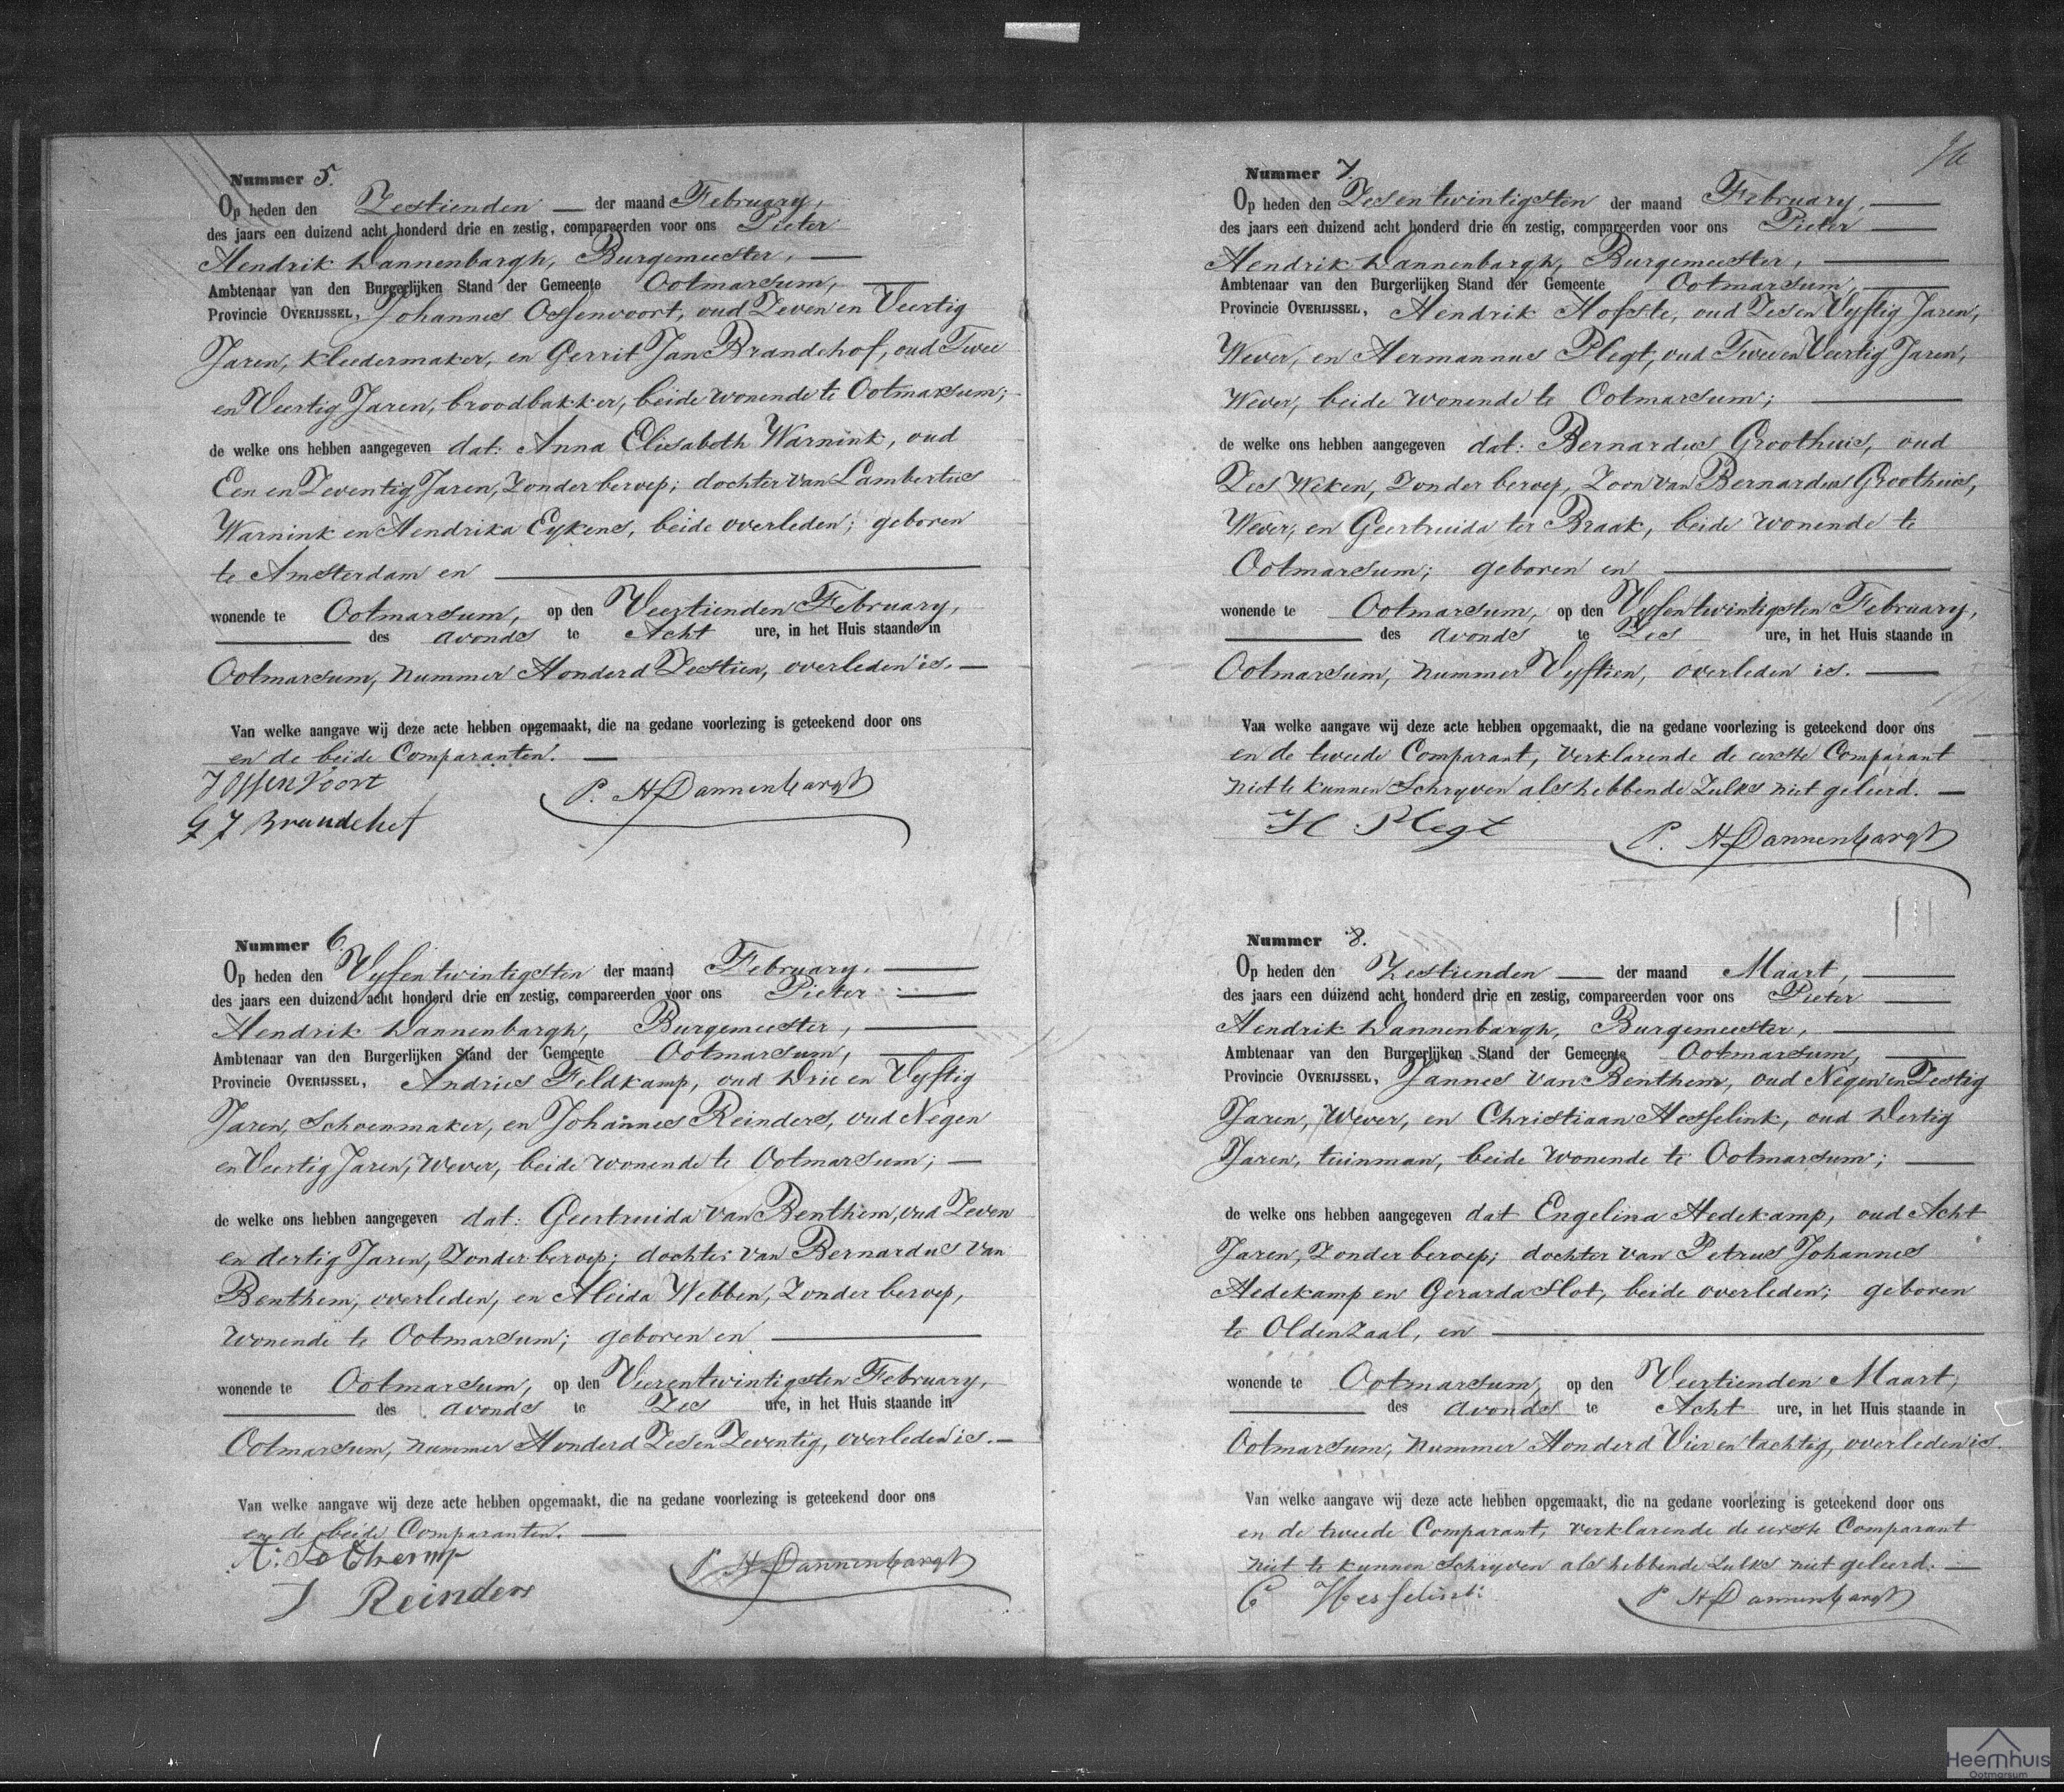 Nummer 5.
Op heden den Zestienden der maand February,
des jaars een duizend acht honderd drie en zestig, compareerden voor ons Pieter
Hendrik Dannenbargh, Burgemeester,
Ambtenaar van den Burgerlijken Stand der Gemeente Ootmarsum,
Provincie OVERIJSSEL, Johannes Ossenvoort, oud Zeven en Veertig
Jaren, kleedermaker, en Gerrit Jan Brandehof, oud Twee
en Veertig Jaren, broodbakker, beide wonende te Ootmarsum;
de welke ons hebben aangegeven dat: Anna Elisabeth Warnink, oud
Een en Zeventig Jaren, Zonder beroep; dochter van Lambertus
Warnink en Hendrika Eykens, beide overleden; geboren
te Amsterdam en
wonende te Ootmarsum, op den Veertienden February,
des avonds te Acht ure, in het Huis staande in
Ootmarsum, nummer Honderd Zestien, overleden is.
Van welke aangave wij deze acte hebben opgemaakt, die na gedane voorlezing is geteekend door ons
en de beide Comparanten.
J Ossenvoort P. H Dannenbargh
G J Brandehof
Nummer 6.
Op heden den Vyfentwintigsten der maand February,
des jaars een duizend acht honderd drie en zestig, compareerden voor ons Pieter
Hendrik Dannenbargh, Burgemeester,
Ambtenaar van den Burgerlijken Stand der Gemeente Ootmarsum,
Provincie OVERIJSSEL, Andries Feldkamp, oud Drie en Vyftig
Jaren, Schoenmaker, en Johannes Reinders, oud Negen
en Veertig Jaren, Wever, beide wonende te Ootmarsum;
de welke ons hebben aangegeven dat: Geertruida van Benthem, oud Zeven
en dertig Jaren, Zonder beroep; dochter van Bernardus van
Benthem, overleden, en Aleida Webben, Zonder beroep,
wonende te Ootmarsum; geboren en
wonende te Ootmarsum, op den Vierentwintigsten February,
des avonds te Zes ure, in het Huis staande in
Ootmarsum, nummer Honderd Zes en Zeventig, overleden is.
Van welke aangave wij deze acte hebben opgemaakt, die na gedane voorlezing is geteekend door ons
en de beide Comparanten.
P H Dannenbargh
J Reinders
Nummer 7.
Op heden den Zesentwintigsten der maand February,
des jaars een duizend acht honderd drie en zestig, compareerden voor ons Pieter
Hendrik Dannenbargh, Burgemeester,
Ambtenaar van den Burgerlijken Stand der Gemeente Ootmarsum,
Provincie OVERIJSSEL, Hendrik Hofste, oud Zes en Vyftig Jaren,
Wever, en Hermannus Plegt, oud Twee en Veertig Jaren,
Wever, beide wonende te Ootmarsum;
de welke ons hebben aangegeven dat: Bernardus Groothuis, oud
Zes Weken, Zonder beroep, Zoon van Bernardus Groothuis,
Wever, en Geertruida ter Braak, beide wonende te
Ootmarsum; geboren en
wonende te Ootmarsum, op den Vyfentwintigsten February,
des avonds te Zes ure, in het Huis staande in
Ootmarsum, nummer Vyftien, overleden is.
Van welke aangave wij deze acte hebben opgemaakt, die na gedane voorlezing is geteekend door ons
en de tweede Comparant, verklarende de eerste Comparant
niet te kunnen Schryven als hebbende Zulks niet geleerd.
H. Plegt P. H Dannenbargh
Nummer 8.
Op heden den Zestienden der maand Maart,
des jaars een duizend acht honderd drie en zestig, compareerden voor ons Pieter
Hendrik Dannenbargh, Burgemeester,
Ambtenaar van den Burgerlijken Stand der Gemeente Ootmarsum,
Provincie OVERIJSSEL, Jannes van Benthem, oud Negen en Zestig
Jaren, Wever, en Christiaan Hesselink, oud Dertig
Jaren, tuinman, beide wonende te Ootmarsum;
de welke ons hebben aangegeven dat Engelina Hedekamp, oud Acht
Jaren, Zonder beroep; dochter van Petrus Johannes
Hedekamp en Gerarda Slot, beide overleden; geboren
te Oldenzaal, en
wonende te Ootmarsum, op den Veertienden Maart,
des avonds te Acht ure, in het Huis staande in
Ootmarsum, nummer Honderd Vier en tachtig, overleden is.
Van welke aangave wij deze acte hebben opgemaakt, die na gedane voorlezing is geteekend door ons
en de tweede Comparant, verklarende de eerste Comparant
niet te kunnen Schryven als hebbende Zulks niet geleerd.
C Hesselink P H Dannenbargh
Heemhuis
Ootmarsum